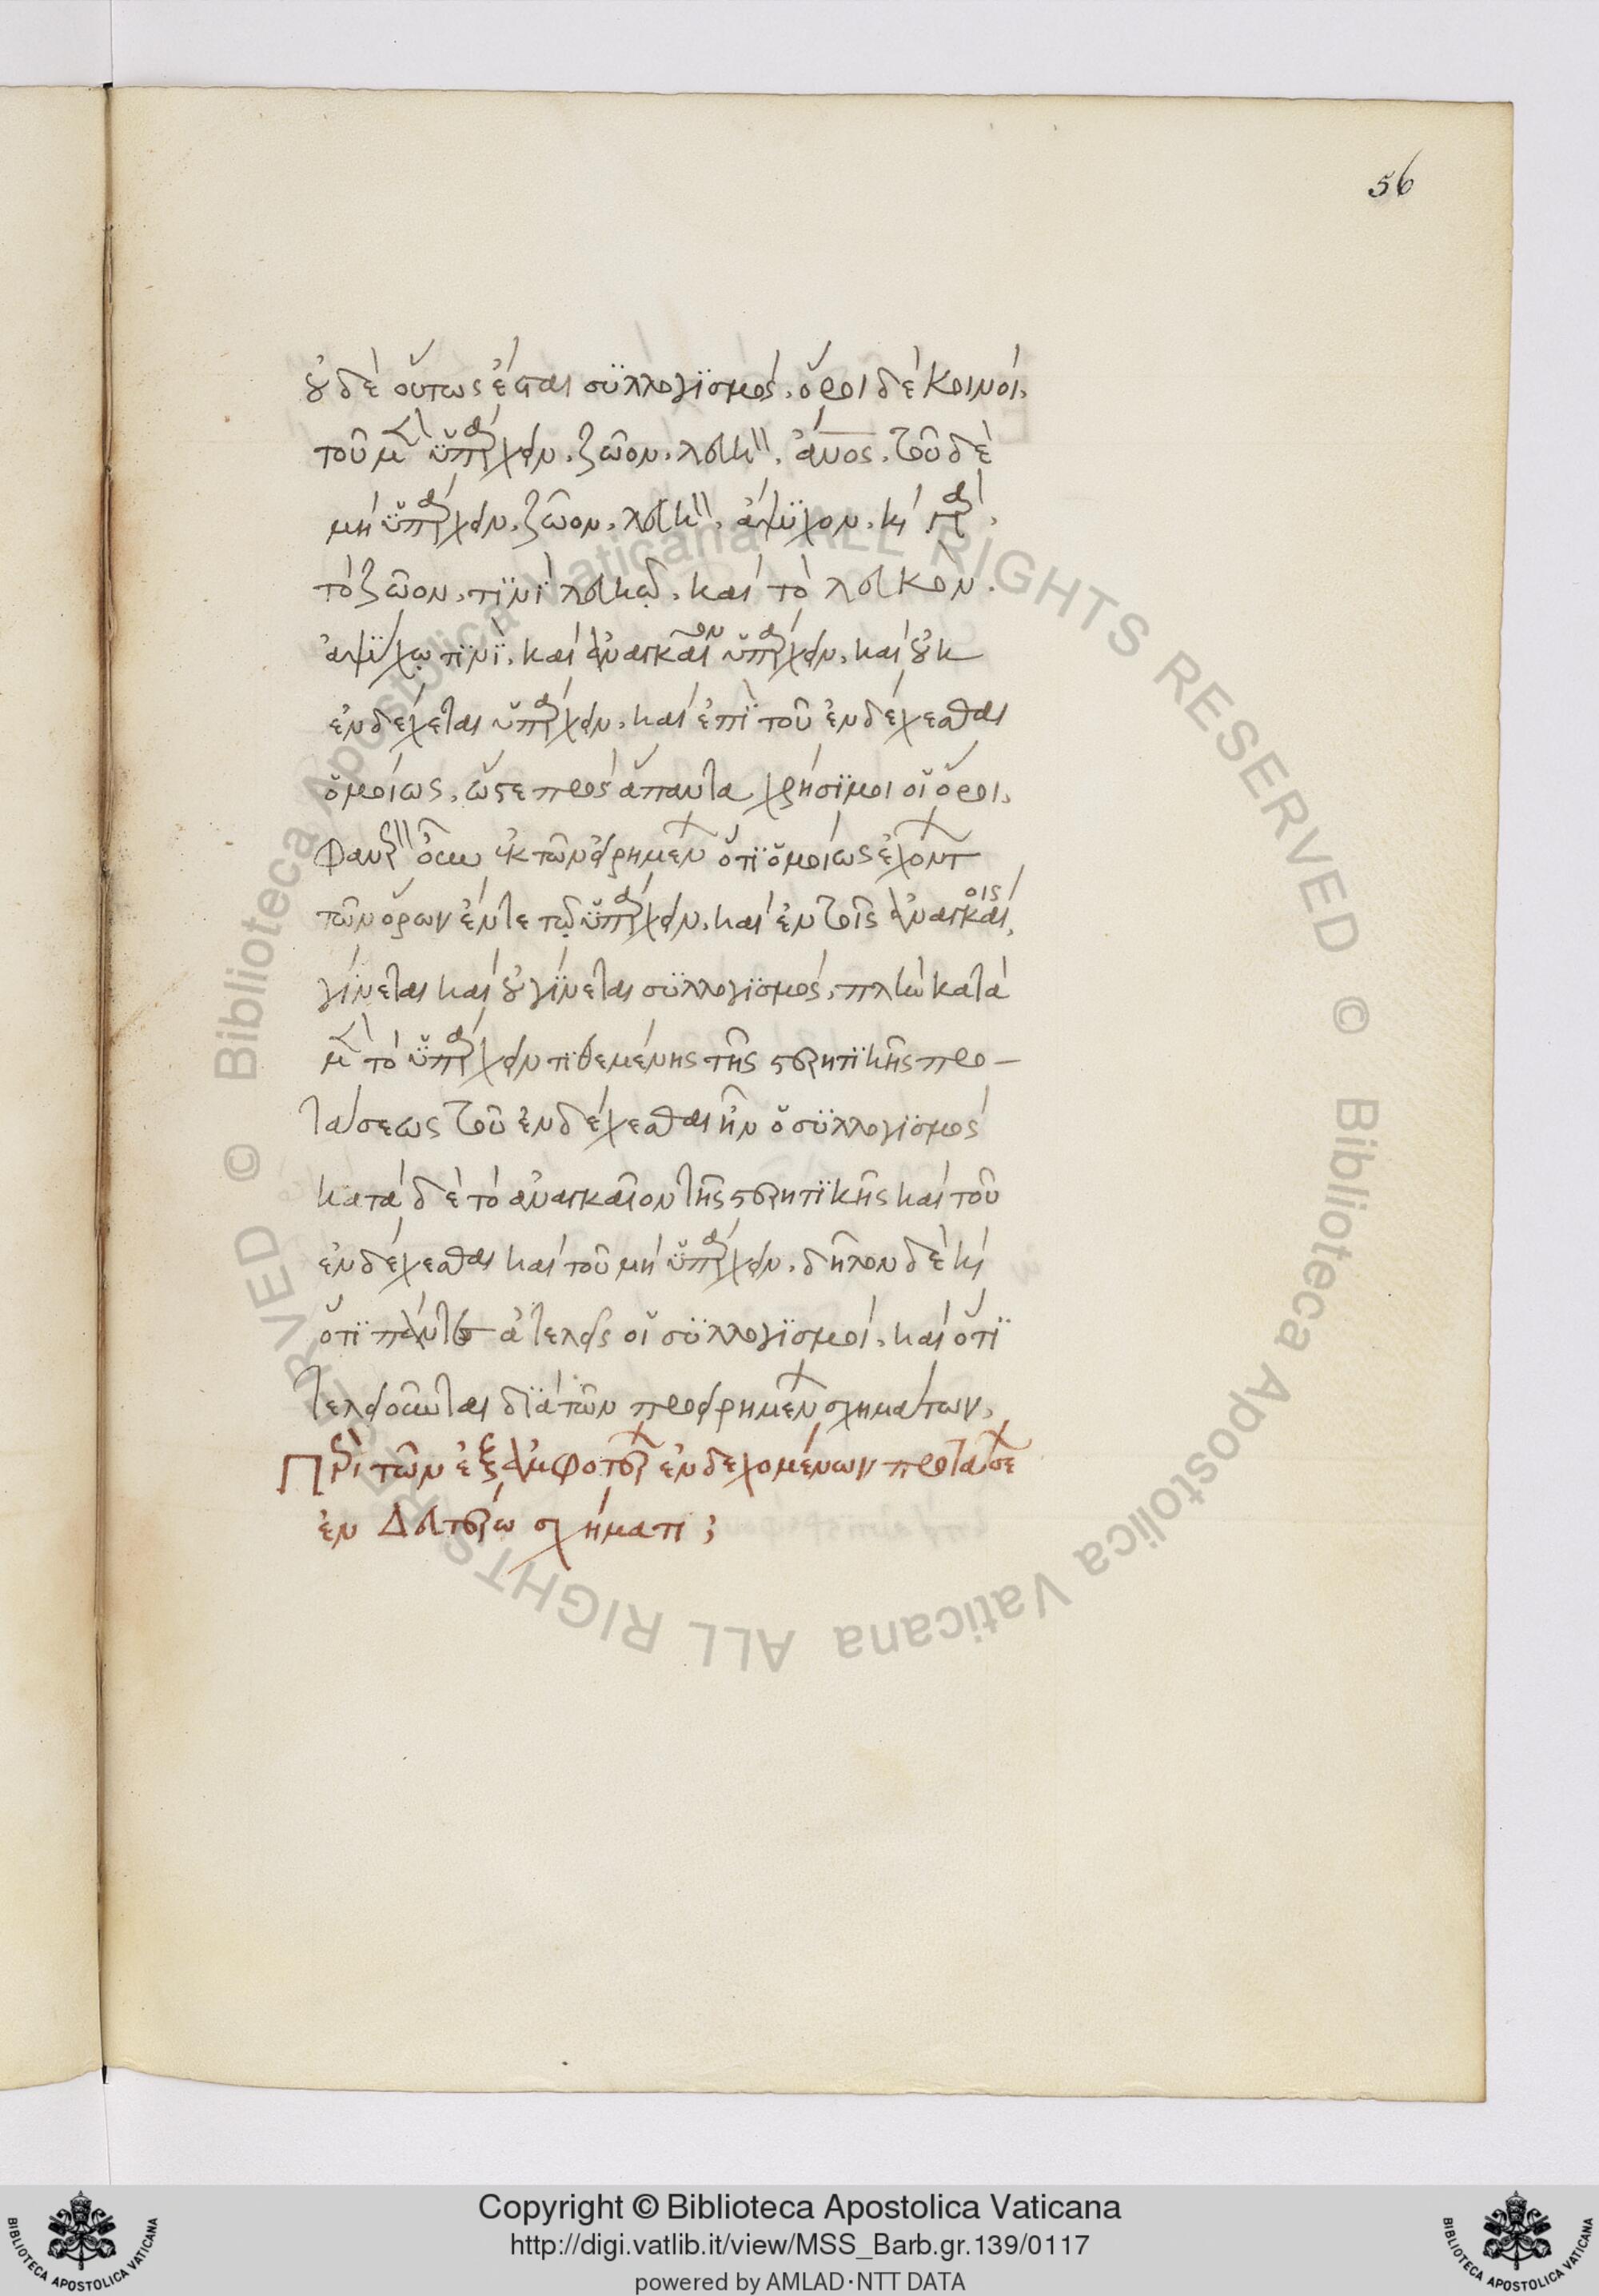 56
οὐδὲ οὕτως ἔσται συλλογισμός. ὅροι δὲ κοινοί.
τοῦ μὲν ὑπάρχειν. ζῶον. λευκόν. ἄνος. τοῦ δὲ
μὴ ὑπάρχειν. ζῶον. λευκόν. ἄψυχον. καὶ γὰρ
τὸ ζῶον. τινὶ λευκῷ. καὶ τὸ λευκὸν.
ἀψύχῳ τινί. καὶ ἀναγκαῖον ὑπάρχειν. καὶ οὐκ
ἐνδέχεται ὑπάρχειν. καὶ ἐπὶ τοῦ ἐνδέχεσθαι
ὁμοίως. ὥστε πρὸς ἅπαντα χρήσιμοι οἱ ὅροι.
Φανερὸν οὖν ἐκ τῶν εἰρημένων ὅτι ὁμοίως ἐχόντων
τῶν ὅρων ἔν τε τῷ ὑπάρχειν. καὶ ἐν τοῖς ἀναγκαίοις
γίνεται καὶ οὐ γίνεται συλλογισμός. πλὴν κατὰ
μὲν τὸ ὑπάρχειν τιθεμένης τῆς στερητικῆς προ-
τάσεως τοῦ ἐνδέχεσθαι ἦν ὁ συλλογισμός
κατὰ δὲ τὸ ἀναγκαῖον τῆς στερητικῆς καὶ τοῦ
ἐνδέχεσθαι καὶ τοῦ μὴ ὑπάρχειν. δῆλον δὲ καὶ
ὅτι πάντες ἀτελεῖς οἱ συλλογισμοί. καὶ ὅτι
τελειοῦνται διὰ τῶν προειρημένων σχημάτων.
Περὶ τῶν ἐξ ἀμφοτέρων ἐνδεχομένων προτάσεων
ἐν Δευτέρω σχήματι;
© Biblioteca Apostolica Vaticana ALL RIGHTS RESERVED © Biblioteca Apostolica Vaticana ALL RIGHTS RESERVED
BIBLIOTECA APOSTOLICA VATICANA
Copyright © Biblioteca Apostolica Vaticana
http://digi.vatlib.it/view/MSS_Barb.gr.139/0117
powered by AMLAD·NTT DATA
BIBLIOTECA APOSTOLICA VATICANA